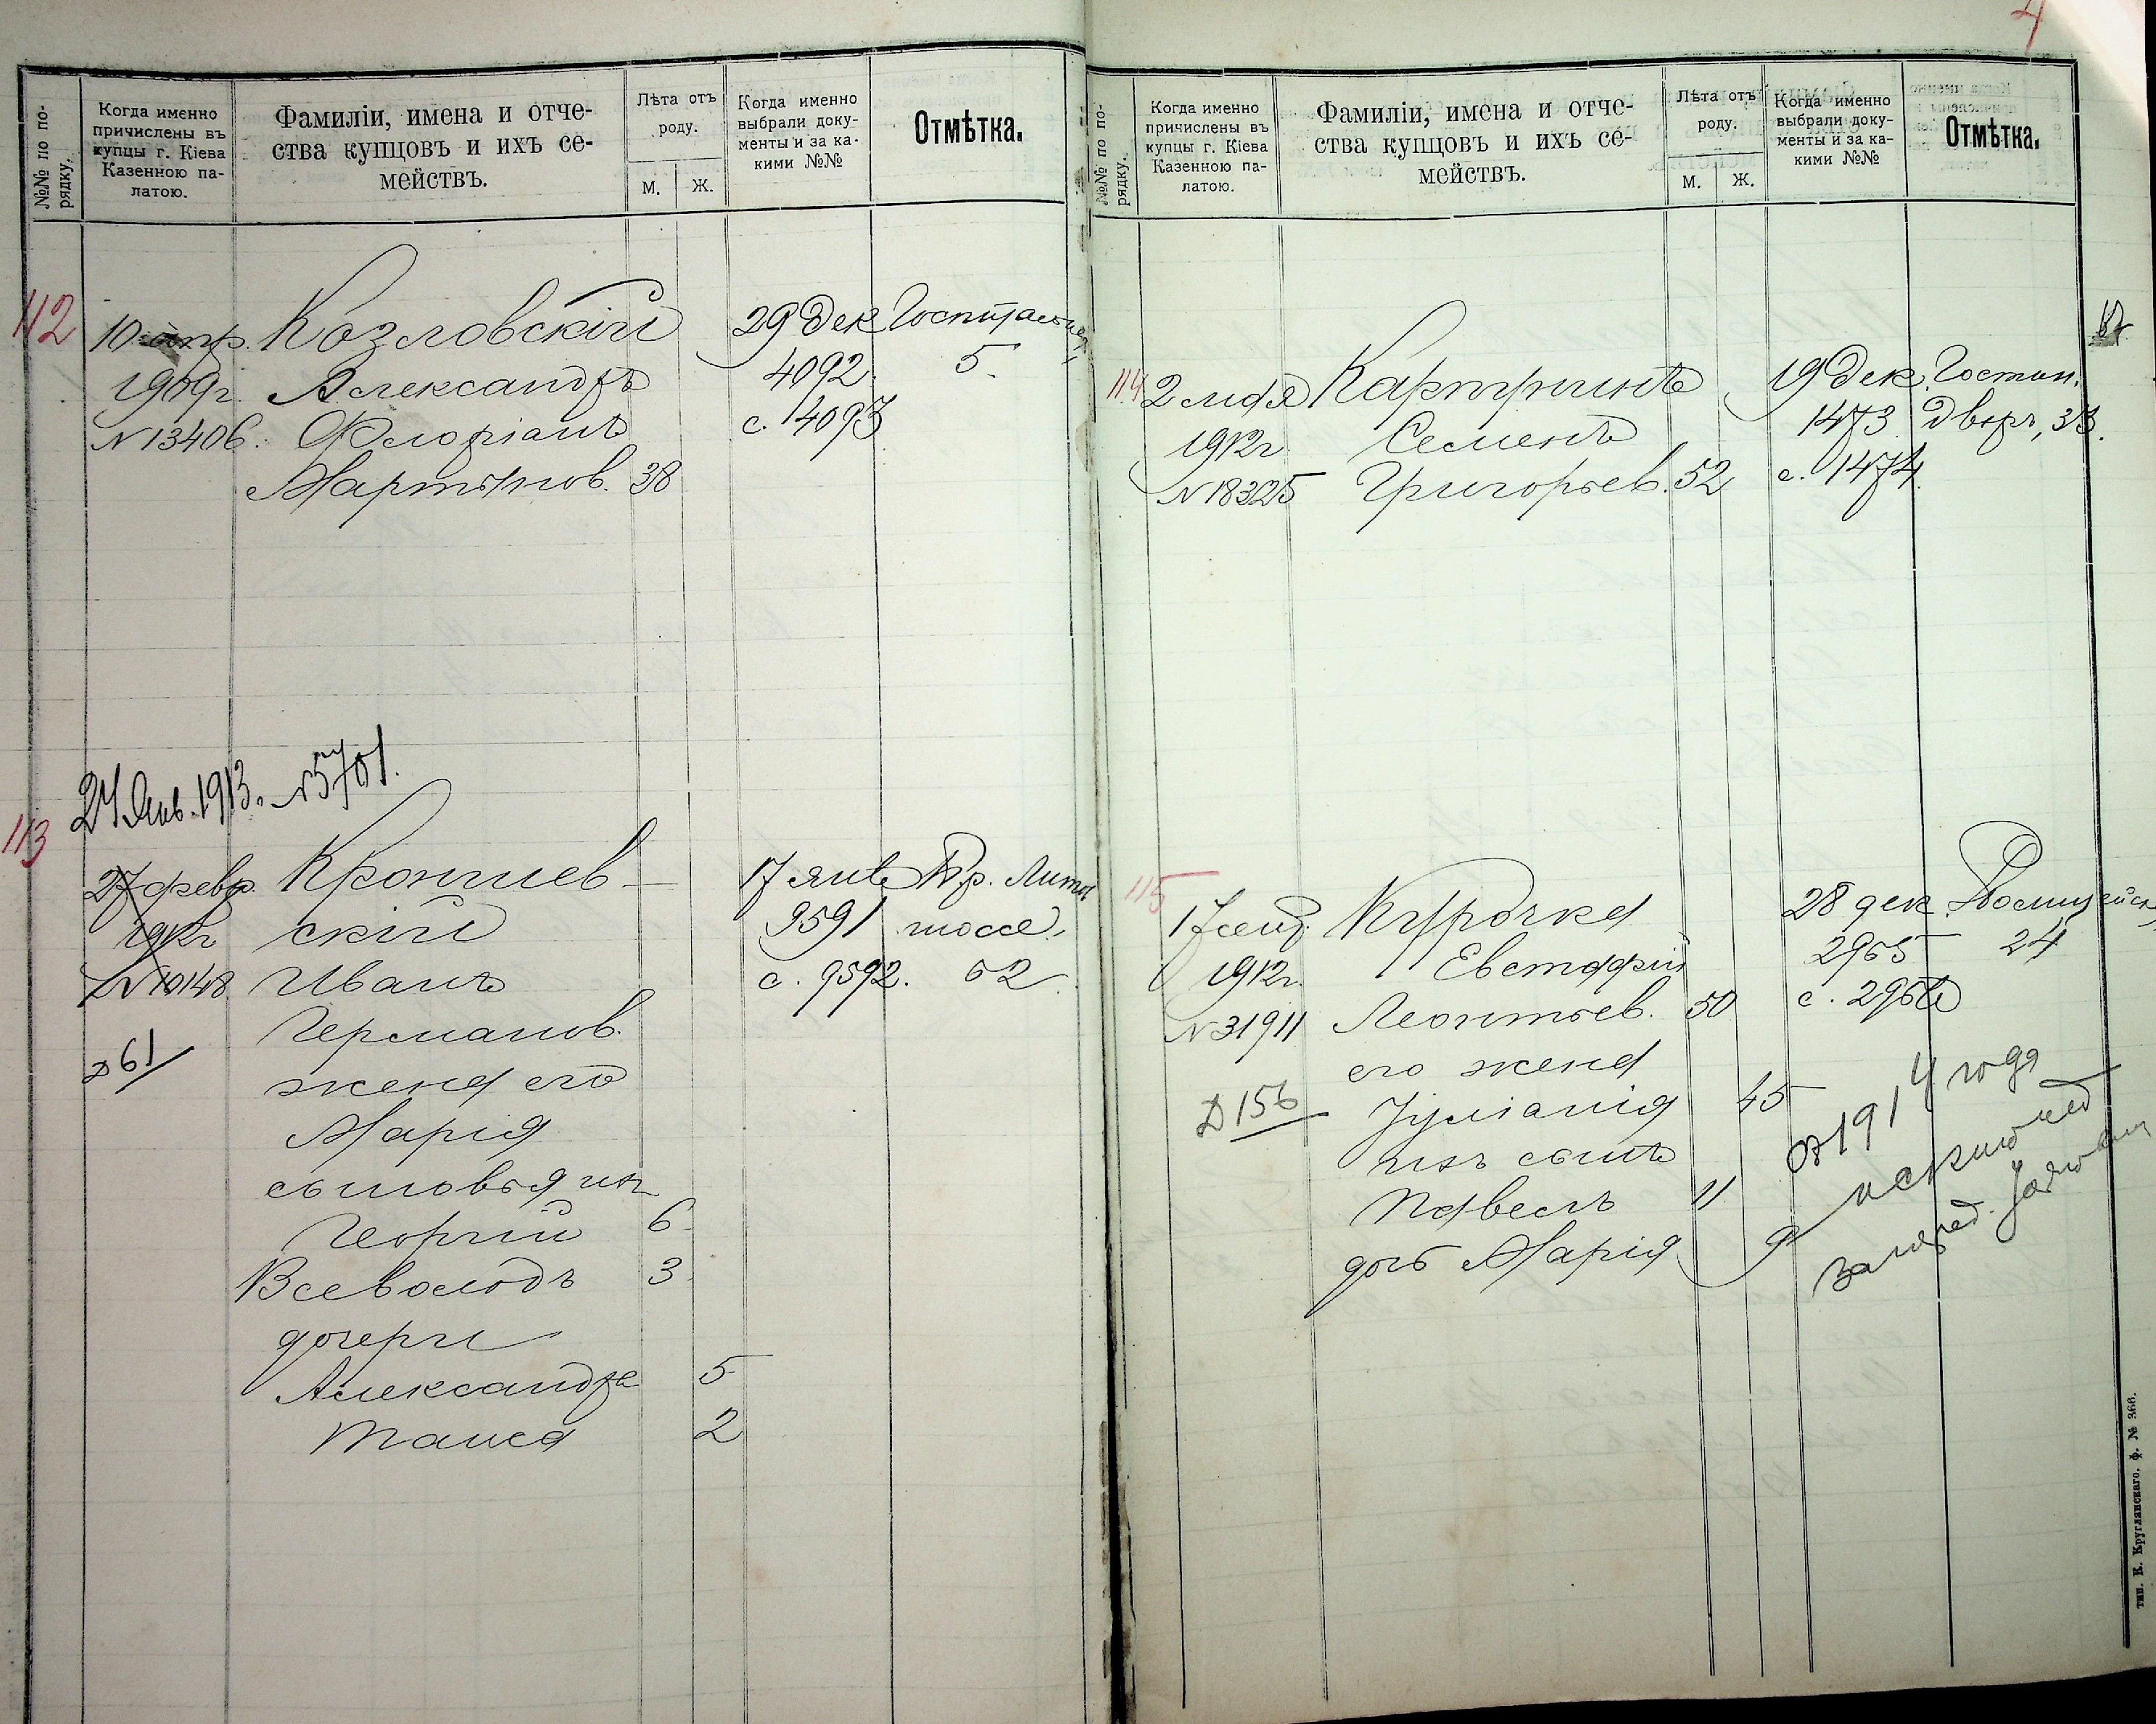 4
№№ по по-
рядку.
Когда именно
причислены въ
купцы г. Кіева
Казенною па-
латою.
Фамиліи, имена и отче-
ства купцовъ и ихъ се-
мействъ.
Лѣта отъ
роду.
М. Ж.
Когда именно
выбрали доку-
менты и за ка-
кими №№
Отмѣтка.
112
10 апр.
1909г.
N 13406.
Козловскій
Александръ
Флоріанъ
Мартынов. 38
29 Дек
4092.
с. 4093
Госпитальн.
5.
24 Янв. 1913. N5701.
113
27 февр.
1912г
N 10148
D 61
Крониев-
скій
Иванъ
Германов.
жена его
Марія
сыновья их
Георгій 6.
Всеволодъ 3.
дочери
Александра 5
Таиса 2
17 янв
9591
с. 9592.
Бр. Лит.
шоссе,
62
№№ по по-
рядку.
Когда именно
причислены въ
купцы г. Кіева
Казенною па-
латою.
Фамиліи, имена и отче-
ства купцовъ и ихъ се-
мействъ.
Лѣта отъ
роду.
М. Ж.
Когда именно
выбрали доку-
менты и за ка-
кими №№
Отмѣтка.
114
2 мая
1912г
N 18325
Семенъ
Григорьев. 52
19 Дек.
1473
с. 1474.
Гостин.
Двор, 33.
115
17 сент.
1912г.
N 31911
D 156
Курочка
Евстафій
Леонтьев. 50
его жена
Іуліанія 45
их сынъ
Павелъ 11
дочь Марія 9
28 дек.
2965
с. 2966
24
Съ 1914 года
исключен
тип. К. Круглянскаго. ф. № 366.